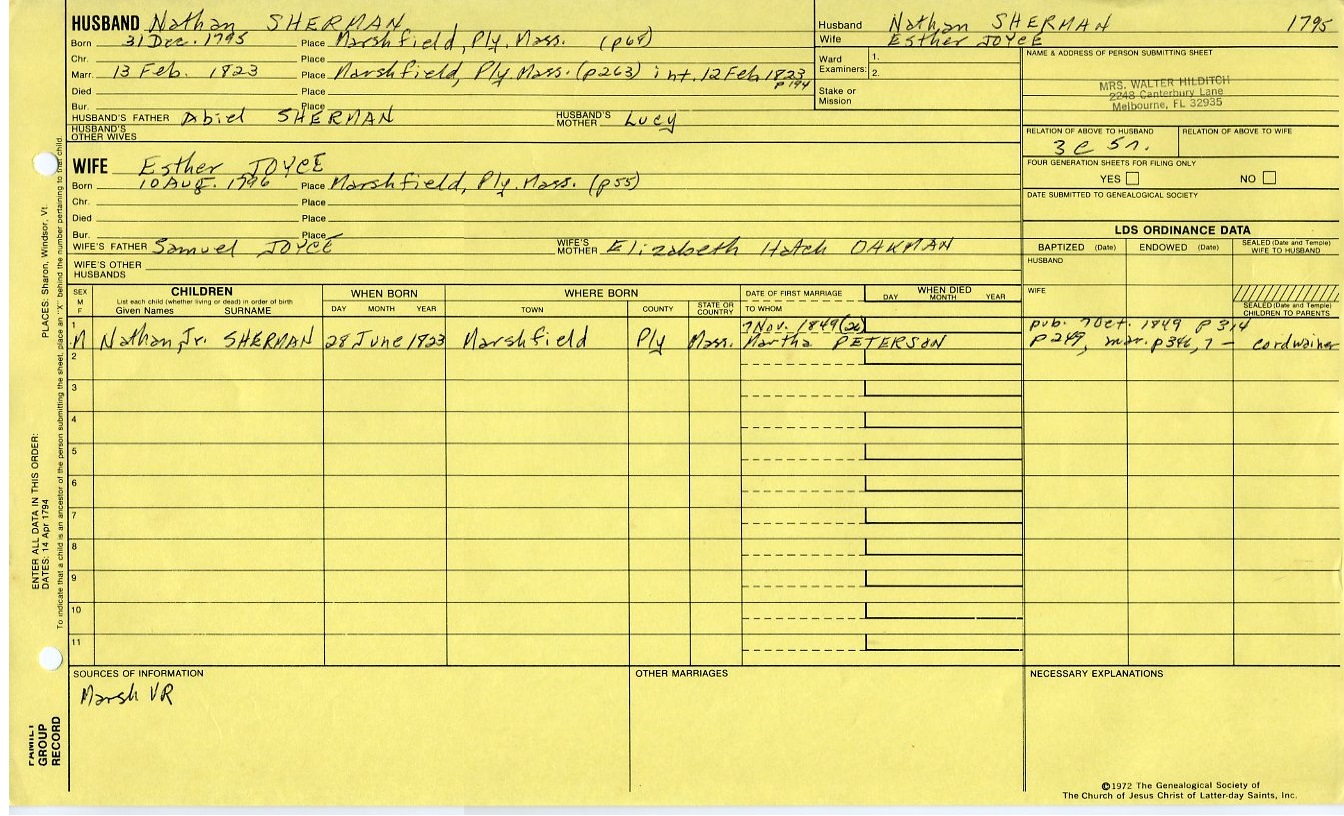 HUSBAND Nathan SHERMAN
Born 31 Dec. 1795 Place Marshfield, Ply. Mass. (p68)
Chr. Place
Marr. 13 Feb. 1823 Place Marshfield, Ply Mass. (p263) int. 12 Feb 1823
p194
Died Place
Bur. Place
HUSBAND'S FATHER Abiel SHERMAN HUSBAND'S MOTHER Lucy
HUSBAND'S OTHER WIVES
WIFE Esther JOYCE
Born 10 Aug. 1796 Place Marshfield, Ply. Mass. (p55)
Chr. Place
Died Place
Bur. Place
WIFE'S FATHER Samuel JOYCE WIFE'S MOTHER Elizabeth Hatch OAKMAN
WIFE'S OTHER HUSBANDS
Husband Nathan SHERMAN 1795
Wife Esther JOYCE
Ward Examiners: 1.
2.
Stake or Mission
NAME & ADDRESS OF PERSON SUBMITTING SHEET
MRS. WALTER HILDITCH
2248 Canterbury Lane
Melbourne, FL 32935
RELATION OF ABOVE TO HUSBAND RELATION OF ABOVE TO WIFE
3 c 5r.
FOUR GENERATION SHEETS FOR FILING ONLY
YES NO
DATE SUBMITTED TO GENEALOGICAL SOCIETY
LDS ORDINANCE DATA
BAPTIZED (Date) ENDOWED (Date) SEALED (Date and Temple) WIFE TO HUSBAND
HUSBAND
WIFE
SEALED (Date and Temple) CHILDREN TO PARENTS
SEX M F CHILDREN WHEN BORN WHERE BORN DATE OF FIRST MARRIAGE WHEN DIED
List each child (whether living or dead) in order of birth
Given Names SURNAME DAY MONTH YEAR TOWN COUNTY STATE OR COUNTRY TO WHOM DAY MONTH YEAR
1 7 Nov. 1849 (26) pub. 7 Oct. 1849 p 314
M Nathan, Jr. SHERMAN 28 June 1823 Marshfield Ply Mass. Martha PETERSON p249, mar. p346,7 - cordwainer
2
3
4
5
6
7
8
9
10
11
SOURCES OF INFORMATION OTHER MARRIAGES NECESSARY EXPLANATIONS
Marsh VR
©1972 The Genealogical Society of
The Church of Jesus Christ of Latter-day Saints, Inc.
ENTER ALL DATA IN THIS ORDER:
DATES: 14 Apr 1794 PLACES: Sharon, Windsor, Vt.
To indicate that a child is an ancestor of the person submitting the sheet, place an "X" behind the number pertaining to that child.
FAMILY
GROUP
RECORD